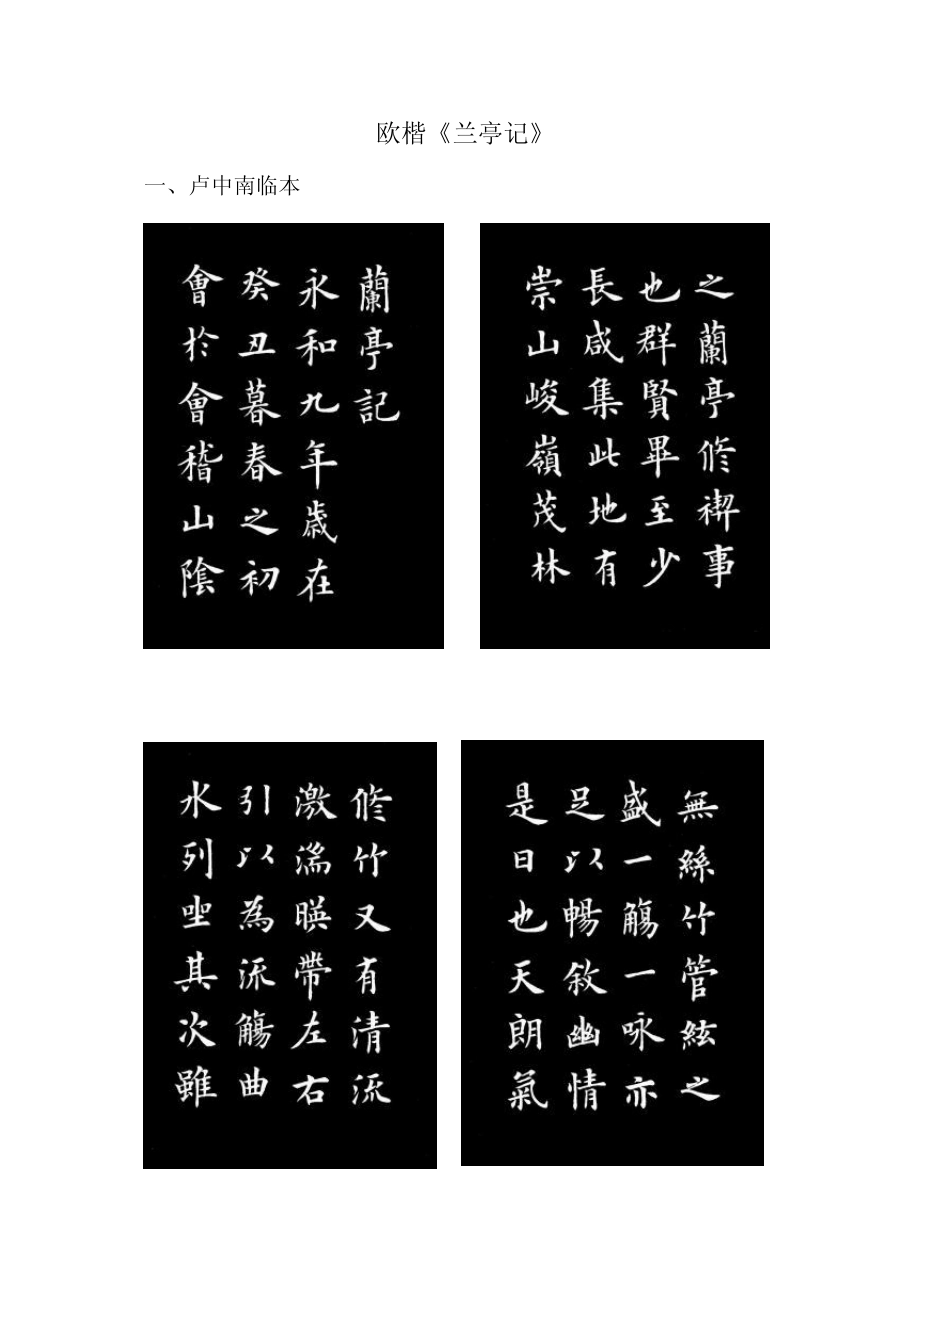 欧楷《兰亭记》
一、卢中南临本
蘭亭記
永和九年歳在
癸丑暮春之初
會於會稽山陰
之蘭亭修禊事
也群賢畢至少
長咸集此地有
崇山峻嶺茂林
修竹又有清流
激湍暎帶左右
引以為流觴曲
水列坐其次雖
無絲竹管絃之
盛一觴一咏亦
足以暢敘幽情
是日也天朗氣